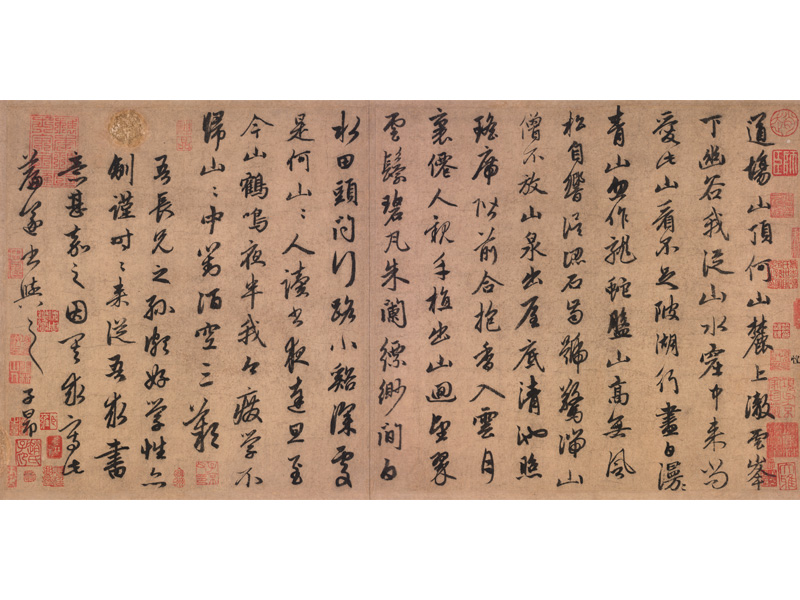 道場山頂何山麓上澈雲峯
下幽谷我從山水窟中来尚
愛此山看不足陂湖行盡白漫〻
青山忽作龍蛇盤山高無風
松自響誤認石齒號驚湍山
僧不放山泉出屋底清池照
瑤席階前合抱香入雲月
裏僊人親手植出山迴望翠
雲鬟碧瓦朱闌縹緲間白
水田頭問行路小谿深處
是何山〻人讀書夜達旦至
今山鶴鳴夜半我今廢学不
歸山〻中對酒空三歎
吾長兄之孫頗好学性亦
謹時〻来從吾求書
意甚嘉之因其求寫此
篇遂書與之
子昂